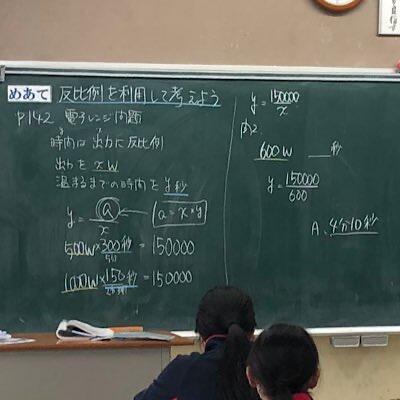 めあて 反比例を利用して考えよう
P142 電子レンジ問題
y x
時間は出力に反比例
出力を xW
温まるまでの時間を y秒
y = a/x a = x × y
500W × 300秒 = 150000
5分
1000W × 150秒 = 150000
2分30秒
y = 150000/x
問2
600W 秒
y = 150000/600
A. 4分10秒